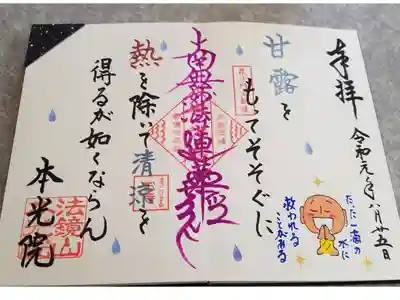 奉拝
令和元年八月廿五日
甘露を
もってそそぐに
南無妙法蓮華経
熱を除いて清涼を
得るが如くならん
本光院
法鏡山
たった一滴の
水に
救われる
ことがある